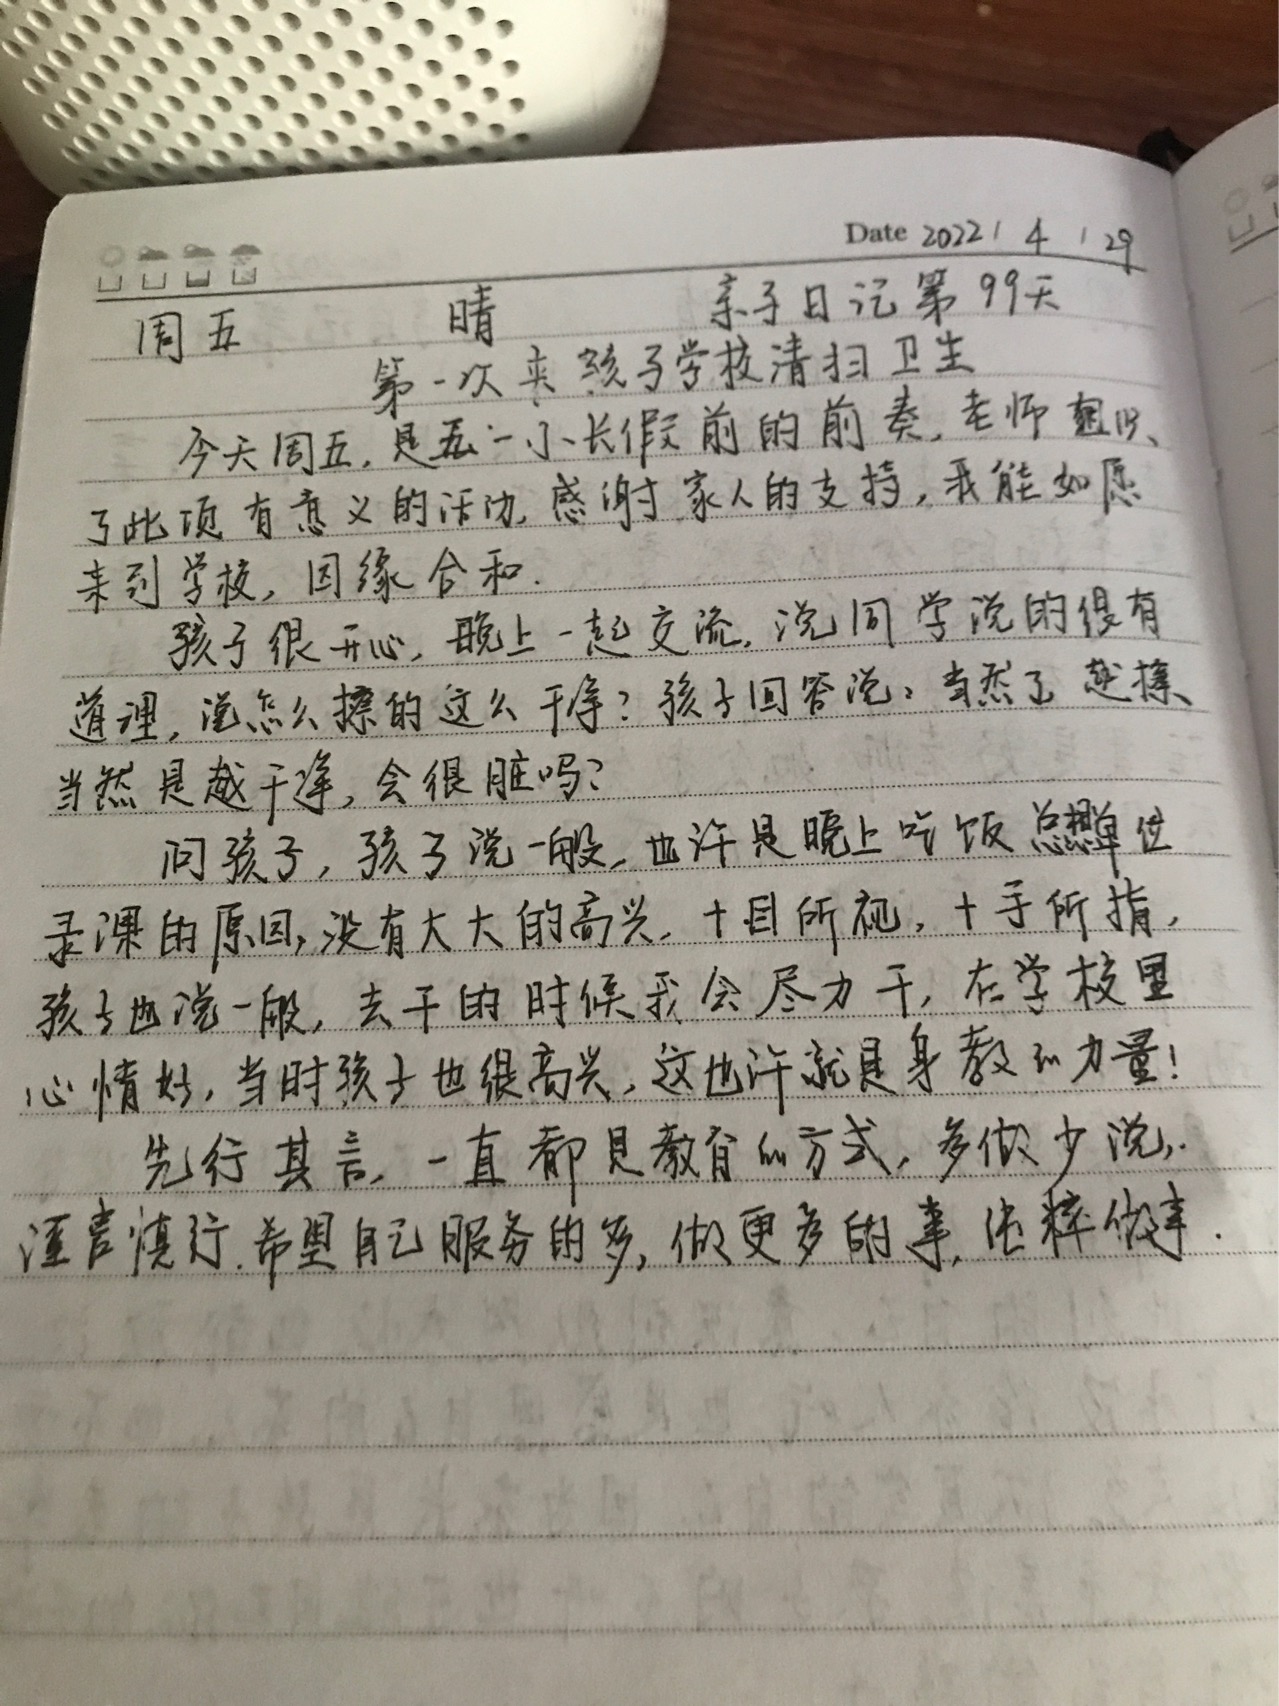 Date 2022 / 4 / 29
周五 晴 亲子日记第99天
第一次来孩子学校清扫卫生
今天周五，是五一小长假前的前奏，老师组织
了此项有意义的活动，感谢家人的支持，我能如愿
来到学校，因缘合和．
孩子很开心，晚上一起交流，说同学说的很有
道理，说怎么擦的这么干净？孩子回答说：当然了越擦
当然是越干净，会很脏吗？
问孩子，孩子说一般，也许是晚上吃饭总想单位
录课的原因，没有大大的高兴，十目所视，十手所指，
孩子也说一般，去干的时候我会尽力干，在学校里
心情好，当时孩子也很高兴，这也许就是身教的力量！
先行其言，一直都是教育的方式，多做少说，
谨言慎行．希望自己服务的多，做更多的事，纯粹做事．